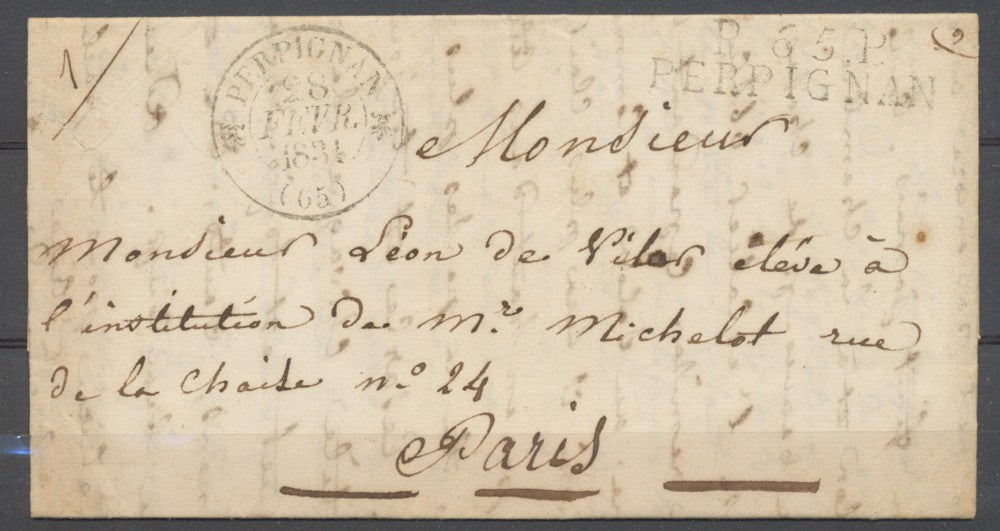 P. 65. P.
PERPIGNAN
PERPIGNAN
28
FEVR.
1831
(65)
Monsieur
Monsieur Léon de Viler élève à
l'institution de Mr. Michelot rue
de la chaise no 24
Paris